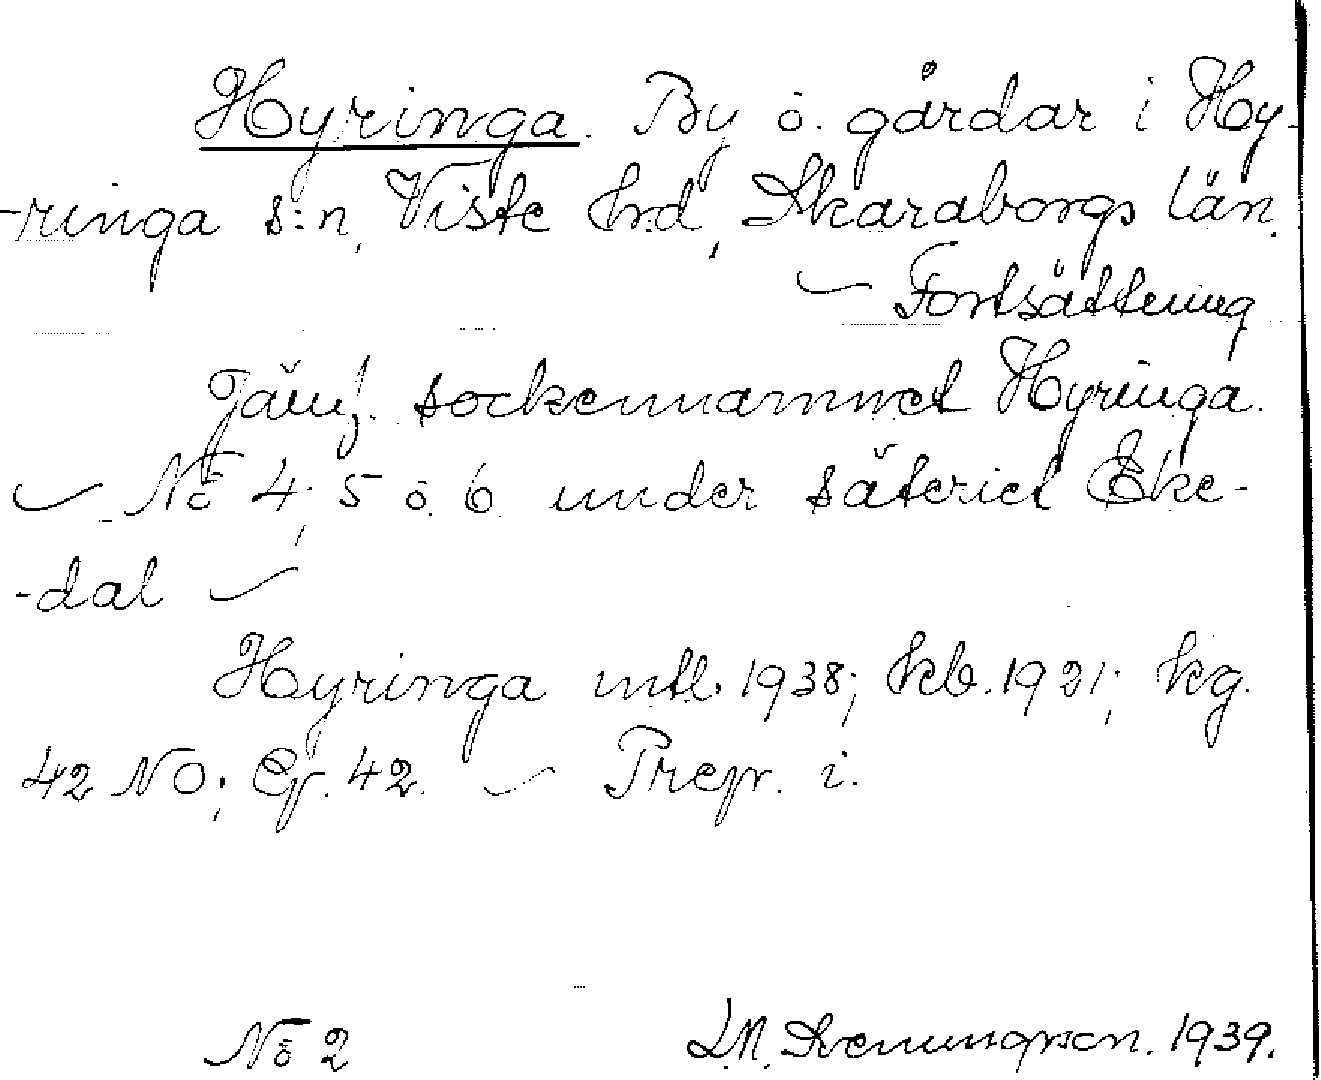 Hyringa. By o. gårdar i Hy-
-ringa s:n, Viste hrd, Skaraborgs län.
– Fortsättning
Jämf. sockennamnet Hyringa.
– No 4, 5 o. 6 under säteriet Eke-
-dal –
Hyringa mtl. 1938; kb. 1921; kg.
42 NO; Ef. 42. – Prep. i.
No 2
L.M. 1939.